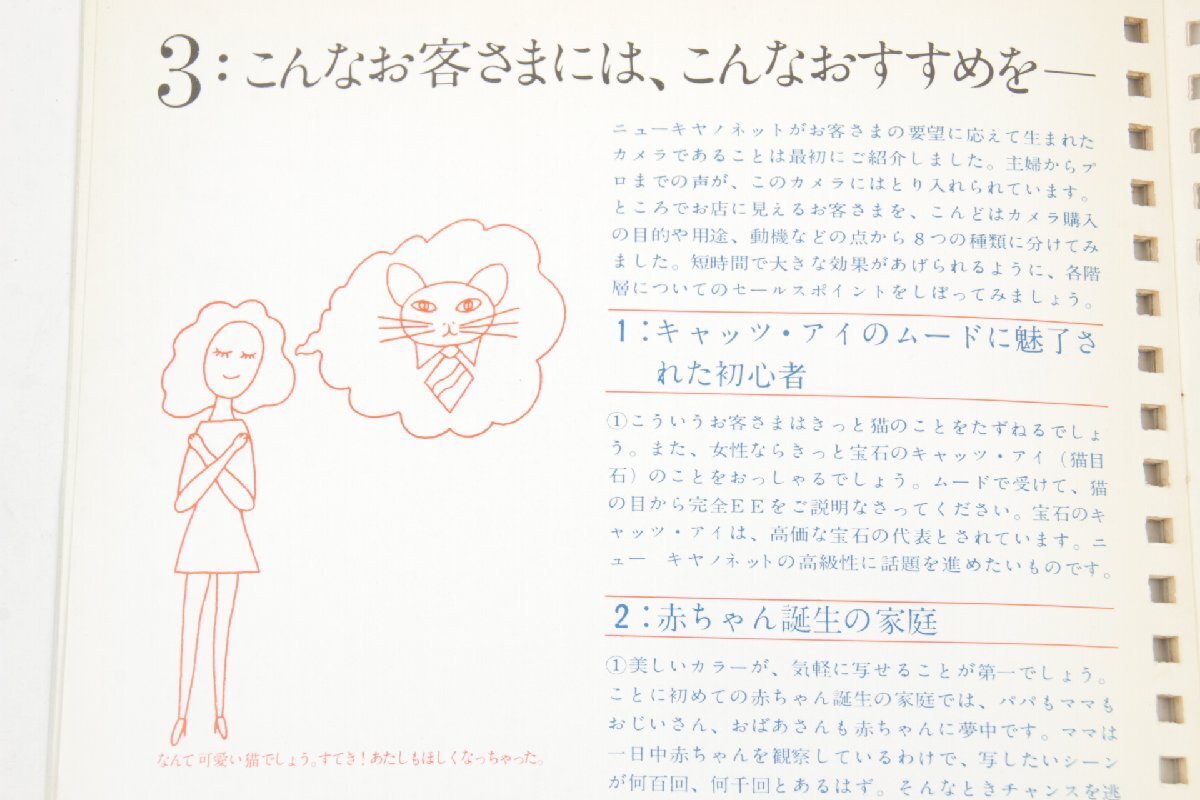 3：こんなお客さまには、こんなおすすめを―
ニューキヤノネットがお客さまの要望に応えて生まれた
カメラであることは最初にご紹介しました。主婦からプ
ロまでの声が、このカメラにはとり入れられています。
ところでお店に見えるお客さまを、こんどはカメラ購入
の目的や用途、動機などの点から8つの種類に分けてみ
ました。短時間で大きな効果があげられるように、各階
層についてのセールスポイントをしぼってみましょう。
1：キャッツ・アイのムードに魅了さ
れた初心者
①こういうお客さまはきっと猫のことをたずねるでしょ
う。また、女性ならきっと宝石のキャッツ・アイ（猫目
石）のことをおっしゃるでしょう。ムードで受けて、猫
の目から完全EEをご説明なさってください。宝石のキ
ャッツ・アイは、高価な宝石の代表とされています。ニ
ュー　キヤノネットの高級性に話題を進めたいものです。
2：赤ちゃん誕生の家庭
①美しいカラーが、気軽に写せることが第一でしょう。
ことに初めての赤ちゃん誕生の家庭では、パパもママも
おじいさん、おばあさんも赤ちゃんに夢中です。ママは
一日中赤ちゃんを観察しているわけで、写したいシーン
が何百回、何千回とあるはず。そんなときチャンスを逃
なんて可愛い猫でしょう。すてき！あたしもほしくなっちゃった。